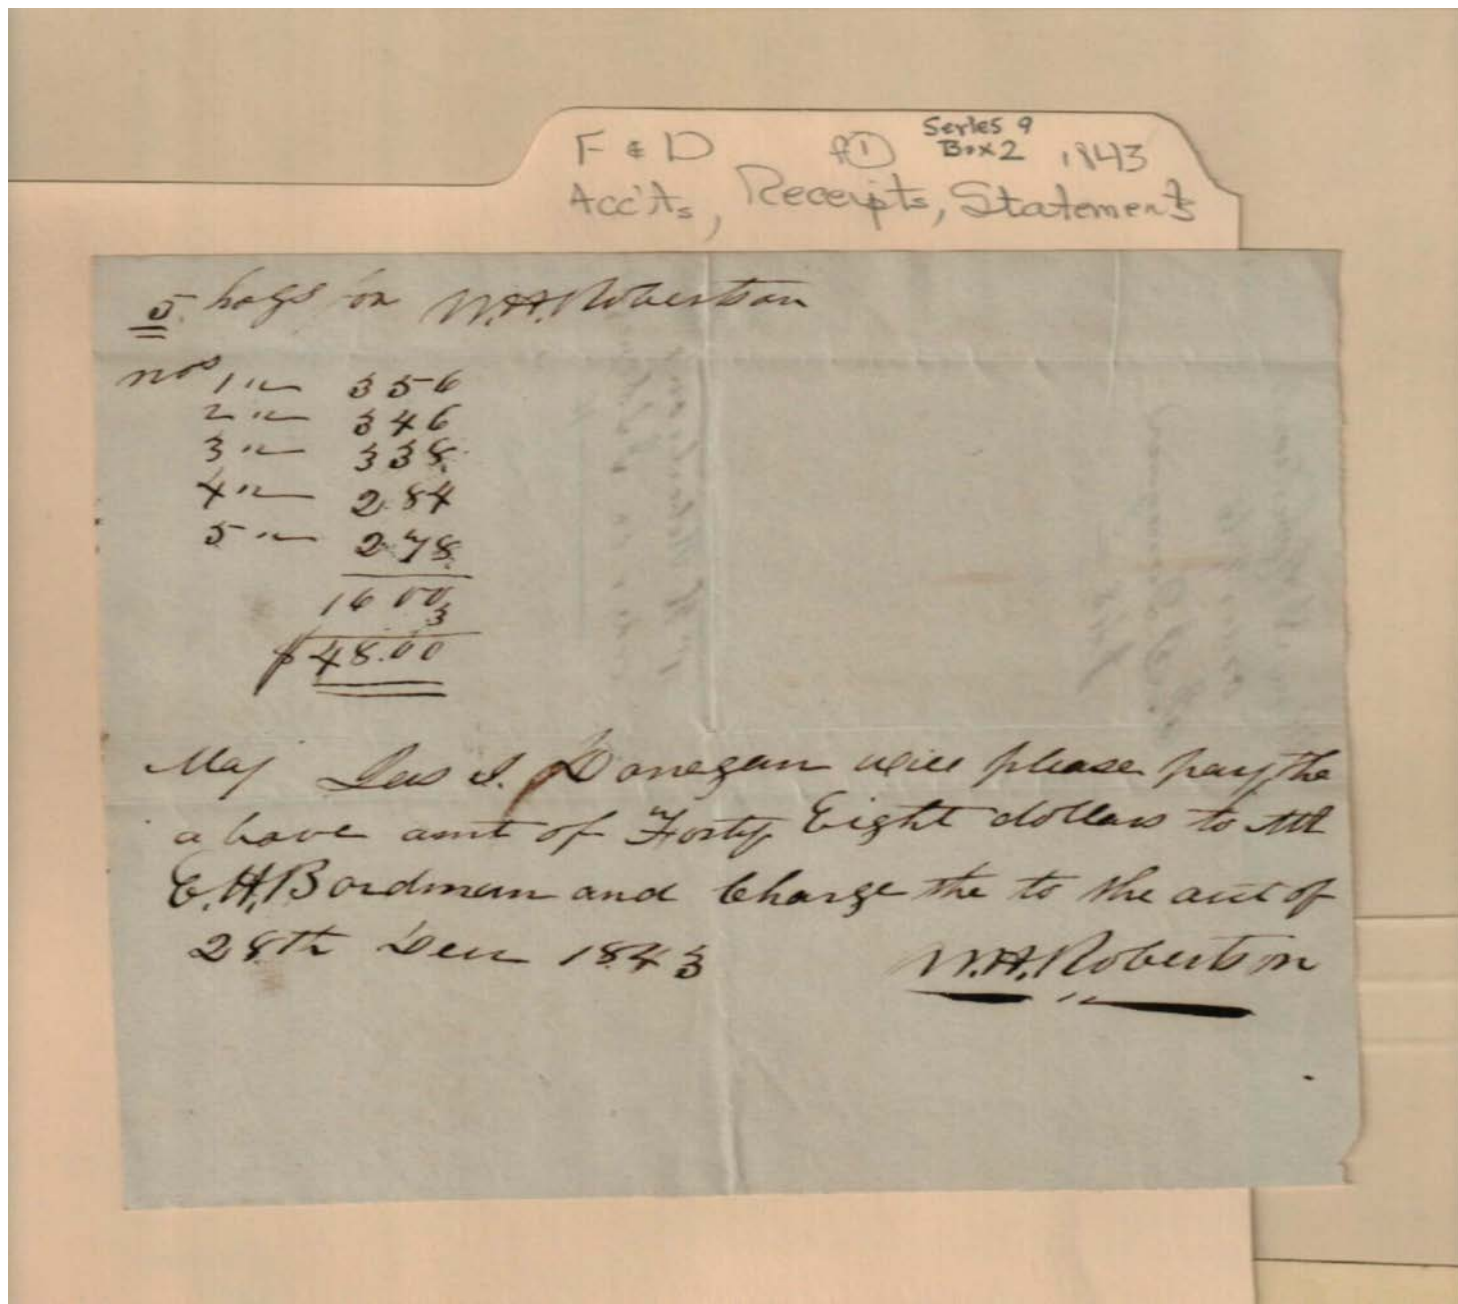 F & D f① Series 9 Box 2 1843
Acc'ts, Receipts, Statements
5 hogs for W.H. Robertson
nos 1 " 356
2 " 346
3 " 338
4 " 284
5 " 278
1600
3
$48.00
Maj Jas J. Donegan will please pay the
above amt of Forty Eight dollars to Mr
E.H. Bordman and Charge the to the acct of
28th Decr 1843 W.H. Robertson